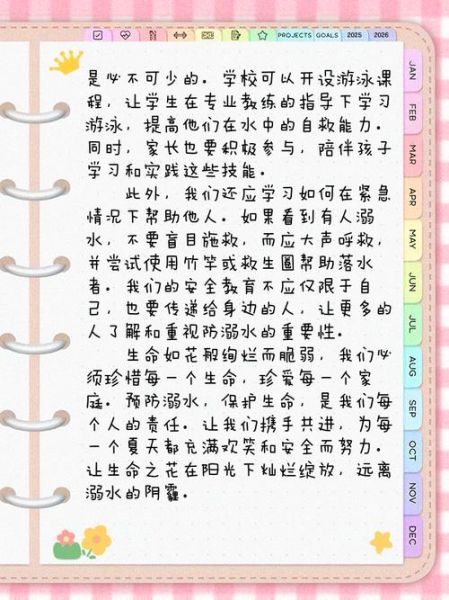 PROJECTS GOALS 2025 2026
是必不可少的。学校可以开设游泳课
程，让学生在专业教练的指导下学习
游泳，提高他们在水中的自救能力。
同时，家长也要积极参与，陪伴孩子
学习和实践这些技能。
此外，我们还应学习如何在紧急
情况下帮助他人。如果看到有人溺
水，不要盲目施救，而应大声呼救，
并尝试使用竹竿或救生圈帮助落水
者。我们的安全教育不应仅限于自
己，也要传递给身边的人，让更多的
人了解和重视防溺水的重要性。
生命如花般绚烂而脆弱，我们必
须珍惜每一个生命，珍爱每一个家
庭。预防溺水，保护生命，是我们每
个人的责任。让我们携手共进，为每
一个夏天都充满欢笑和安全而努力。
让生命之花在阳光下灿烂绽放，远离
溺水的阴霾。
JAN
FEB
MAR
APR
MAY
JUN
JUL
AUG
SEP
OCT
NOV
DEC